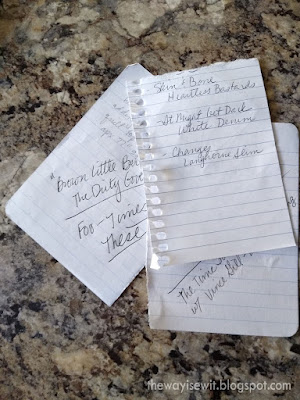 Skin & Bone
Heartless Bastards
-It Might Get Dark
White Denim
- Changes
Langhorne Slim
"Brown Little
The Dirty
Foo - Times
These
The Time
w/ Vince
thewayisewit.blogspot.com